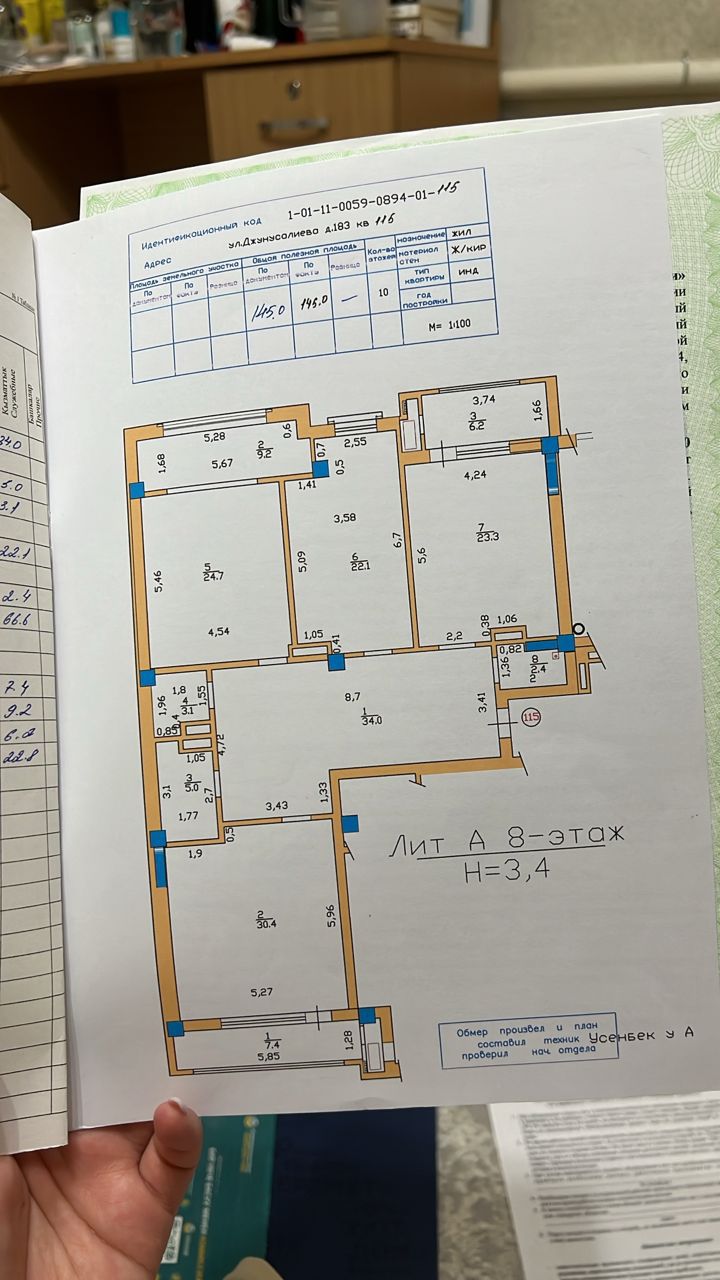 Идентификационный код 1-01-11-0059-0894-01-115
Адрес ул.Джунусалиева д.183 кв 115
Площадь земельного участка Общая полезная площадь Кол-во этажей назначение жил
По документам По факту Разница По документам По факту Разница материал стен Ж/кир
145.0 145.0 — 10 тип квартиры инд
год постройки
М= 1:100
3,74
3
6.2
1,66
5,28
0,6
2
9.2
1,68
5,67
0,7
2,55
0,5
1,41
4,24
3,58
5
24.7
5,46
4,54
5,09
6
22.1
6,7
5,6
7
23.3
1,05
0,41
2,2
0,38
1,06
0,82
1,36
8
2.4
2
1,8
1,96
4
3.1
1,55
0,4
0,85
8,7
1
34.0
3,41
115
4,72
1,05
3
5.0
3,1
2,7
1,77
3,43
1,33
0,5
1,9
Лит А 8-этаж
Н=3,4
2
30.4
5,96
5,27
1
7.4
5,85
1,28
Обмер произвел и план
составил техник Усенбек у А
проверил нач. отдела
Кызматтык
Служебные
Башкалар
Прочие
34.0
5.0
3.1
22.1
2.4
66.6
7.4
9.2
6.2
22.8